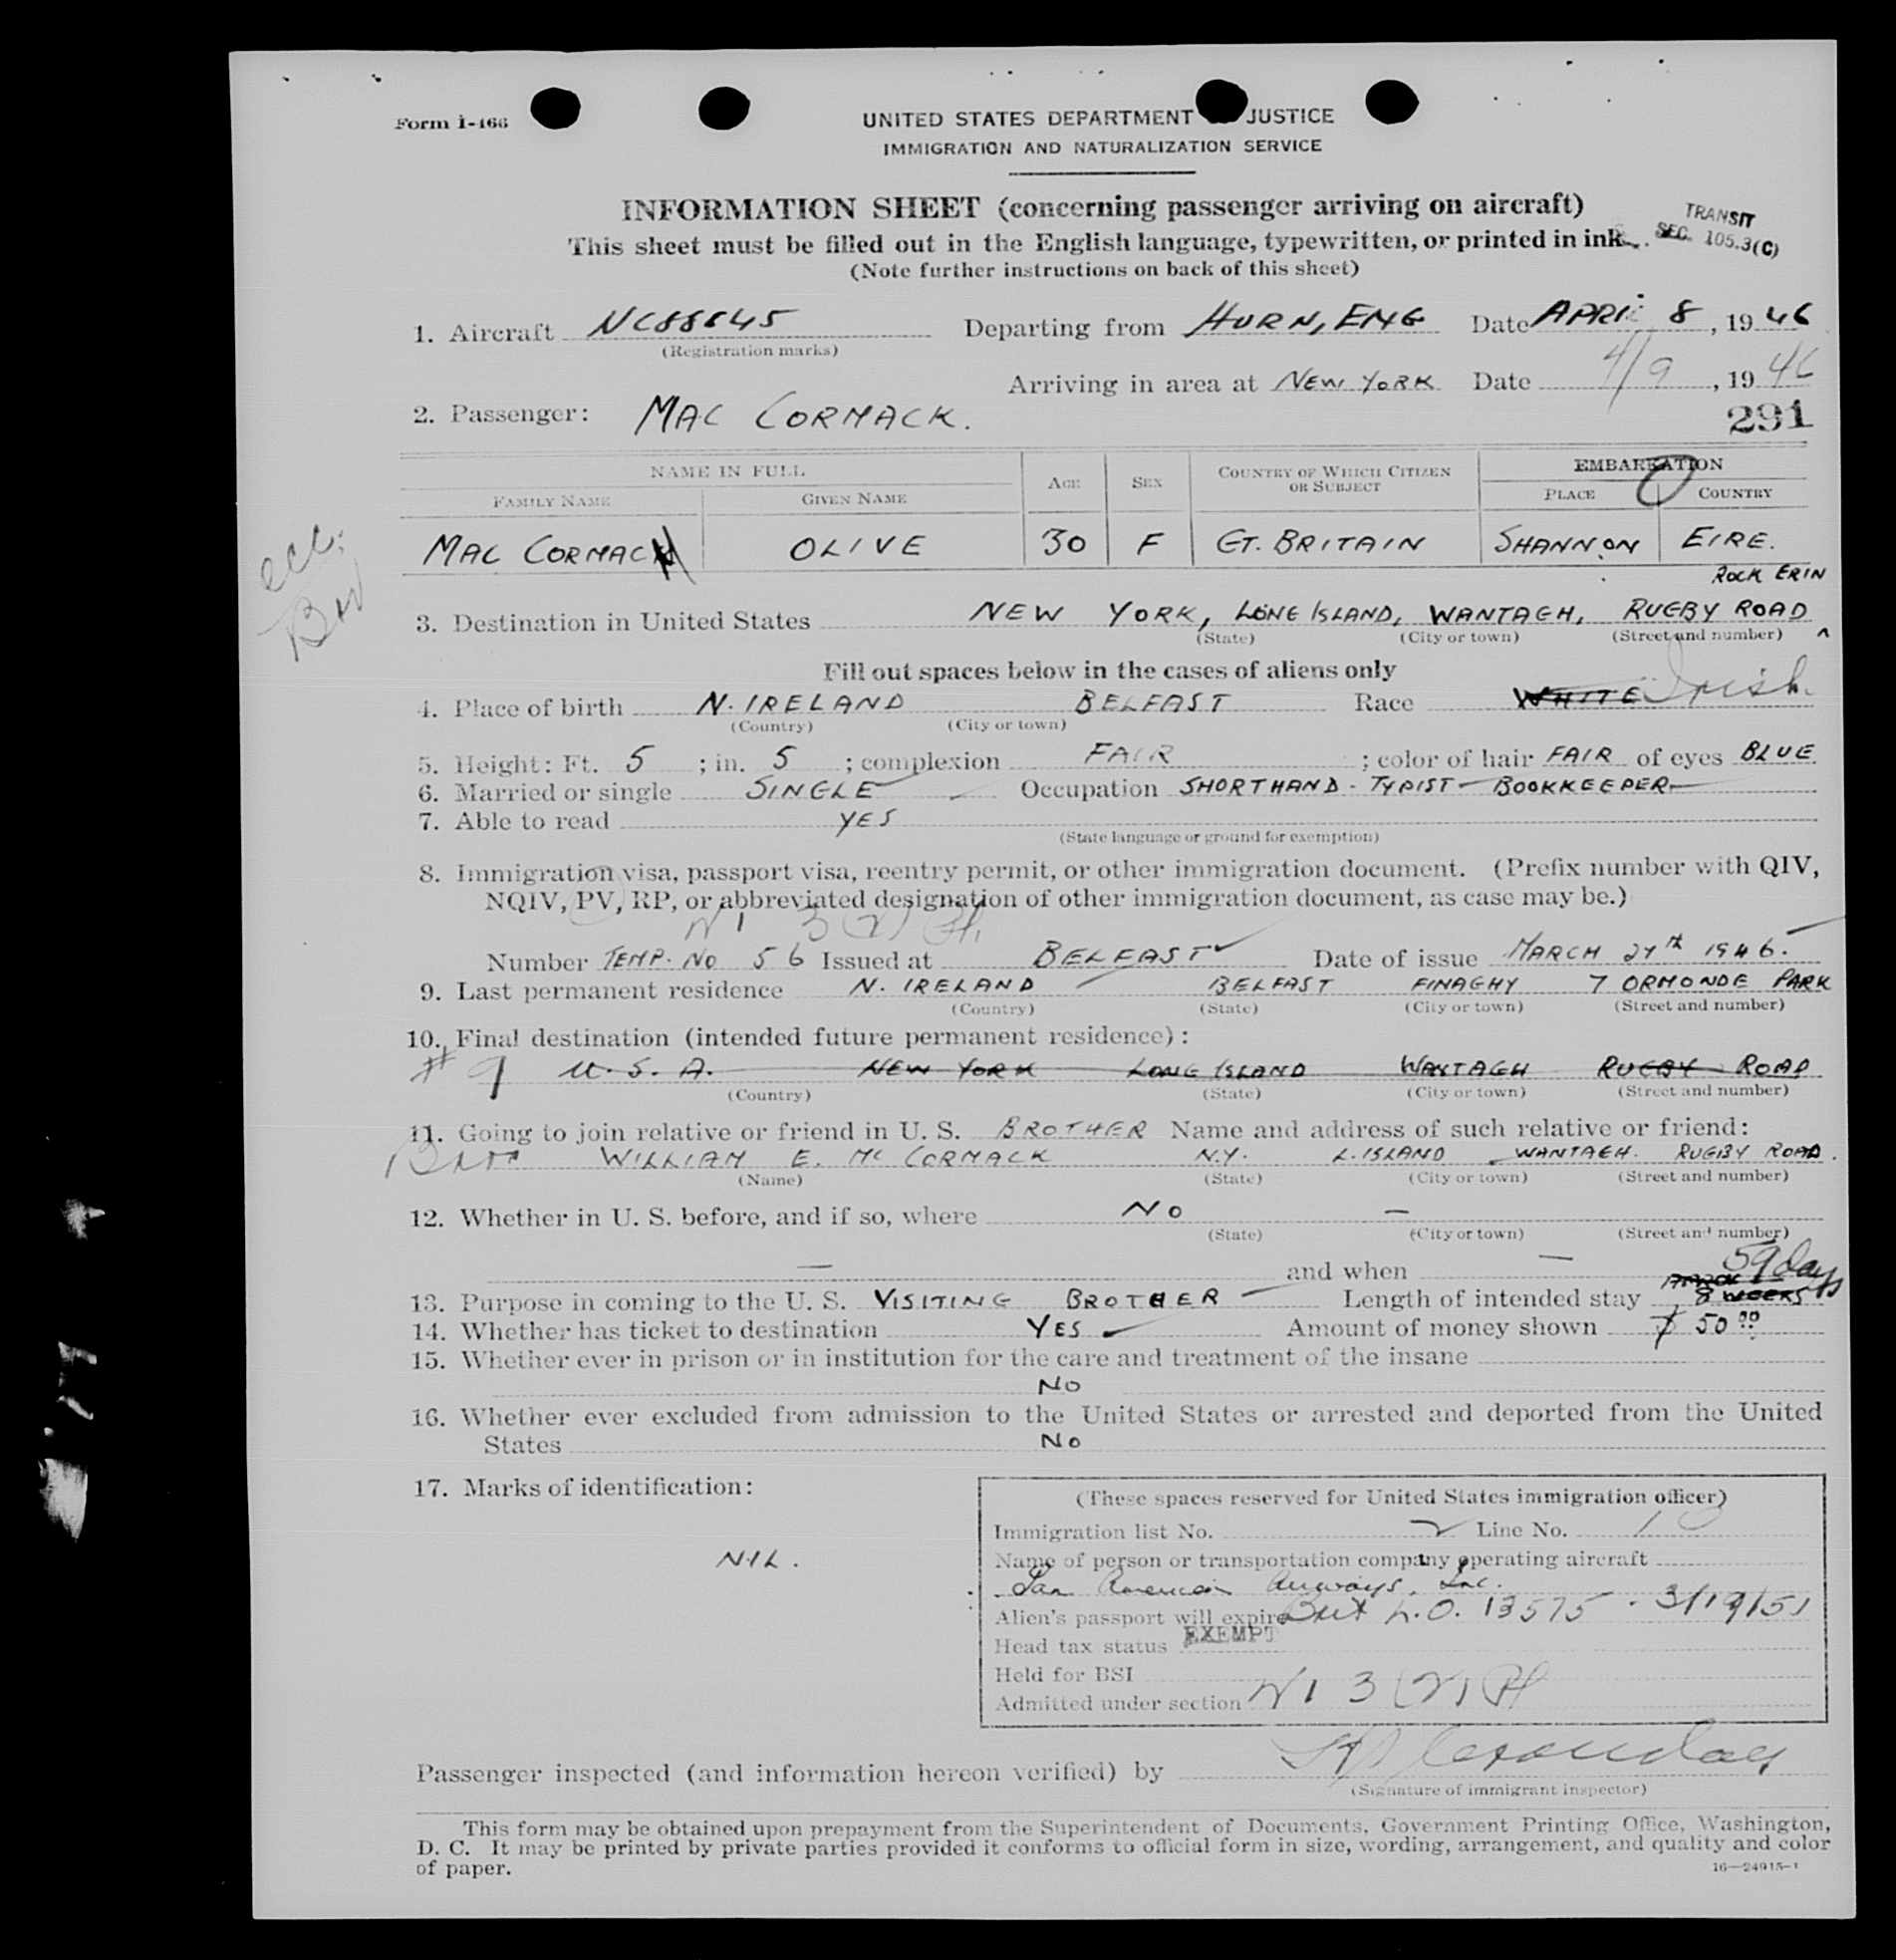 Form I-466
UNITED STATES DEPARTMENT JUSTICE
IMMIGRATION AND NATURALIZATION SERVICE
INFORMATION SHEET (concerning passenger arriving on aircraft)
This sheet must be filled out in the English language, typewritten, or printed in ink.
TRANSIT
SEC. 105.3(C)
(Note further instructions on back of this sheet)
1. Aircraft NC88845 Departing from HURN, ENG Date APRIL 8, 1946
(Registration marks)
Arriving in area at NEW YORK Date 4/9, 1946
2. Passenger: MAC CORMACK.
291
NAME IN FULL AGE SEX COUNTRY OF WHICH CITIZEN OR SUBJECT EMBARKATION
FAMILY NAME GIVEN NAME PLACE COUNTRY
MAC CORMACK OLIVE 30 F GT. BRITAIN SHANNON EIRE.
ROCK ERIN
3. Destination in United States NEW YORK, LONG ISLAND, WANTAGH, RUGBY ROAD
(State) (City or town) (Street and number)
Fill out spaces below in the cases of aliens only
4. Place of birth N. IRELAND BELFAST Race WHITE Irish
(Country) (City or town)
5. Height: Ft. 5 ; in. 5 ; complexion FAIR ; color of hair FAIR of eyes BLUE
6. Married or single SINGLE Occupation SHORTHAND - TYPIST - BOOKKEEPER
7. Able to read YES
(State language or ground for exemption)
8. Immigration visa, passport visa, reentry permit, or other immigration document. (Prefix number with QIV,
NQIV, PV, RP, or abbreviated designation of other immigration document, as case may be.)
Number TEMP. NO 56 Issued at BELFAST Date of issue MARCH 27th 1946.
9. Last permanent residence N. IRELAND BELFAST FINAGHY 7 ORMONDE PARK
(Country) (State) (City or town) (Street and number)
10. Final destination (intended future permanent residence):
# 9 U. S. A. NEW YORK LONG ISLAND WANTAGH RUGBY ROAD
(Country) (State) (City or town) (Street and number)
11. Going to join relative or friend in U. S. BROTHER Name and address of such relative or friend:
Bro WILLIAM E. MC CORMACK N.Y. L. ISLAND WANTAGH. RUGBY ROAD.
(Name) (State) (City or town) (Street and number)
12. Whether in U. S. before, and if so, where NO —
(State) (City or town) (Street and number)
— and when —
59 days
13. Purpose in coming to the U. S. VISITING BROTHER Length of intended stay 8 WEEKS
14. Whether has ticket to destination YES Amount of money shown $ 50 00
15. Whether ever in prison or in institution for the care and treatment of the insane
NO
16. Whether ever excluded from admission to the United States or arrested and deported from the United
States NO
17. Marks of identification:
NIL.
(These spaces reserved for United States immigration officer)
Immigration list No. 2 Line No. 10
Name of person or transportation company operating aircraft
Pan American Airways, Inc.
Alien's passport will expire Brit L.O. 13575 - 3/19/51
Head tax status EXEMPT
Held for BSI
Admitted under section
Passenger inspected (and information hereon verified) by
(Signature of immigrant inspector)
This form may be obtained upon prepayment from the Superintendent of Documents, Government Printing Office, Washington,
D. C. It may be printed by private parties provided it conforms to official form in size, wording, arrangement, and quality and color
of paper.
16—24915-1